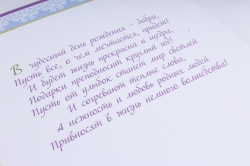 В чудесный день рождения - добра,
Пусть все, о чем мечтается, придет!
И будет жизнь прекрасна и щедра,
Подарки преподносит круглый год!
Пусть от улыбок станет мир светлей
И согревают теплые слова,
А нежность и любовь родных людей
Привносят в жизнь немного волшебства!